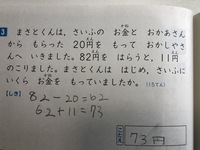 3 まさとくんは、さいふの お金と おかあさん
から もらった 20円を もって おかしやさ
んへ いきました。82円を はらうと、11円
のこりました。まさとくんは はじめ、さいふに
いくら お金を もっていましたか。(15てん)
【しき】 82-20=62
62+11=73
こたえ 73円